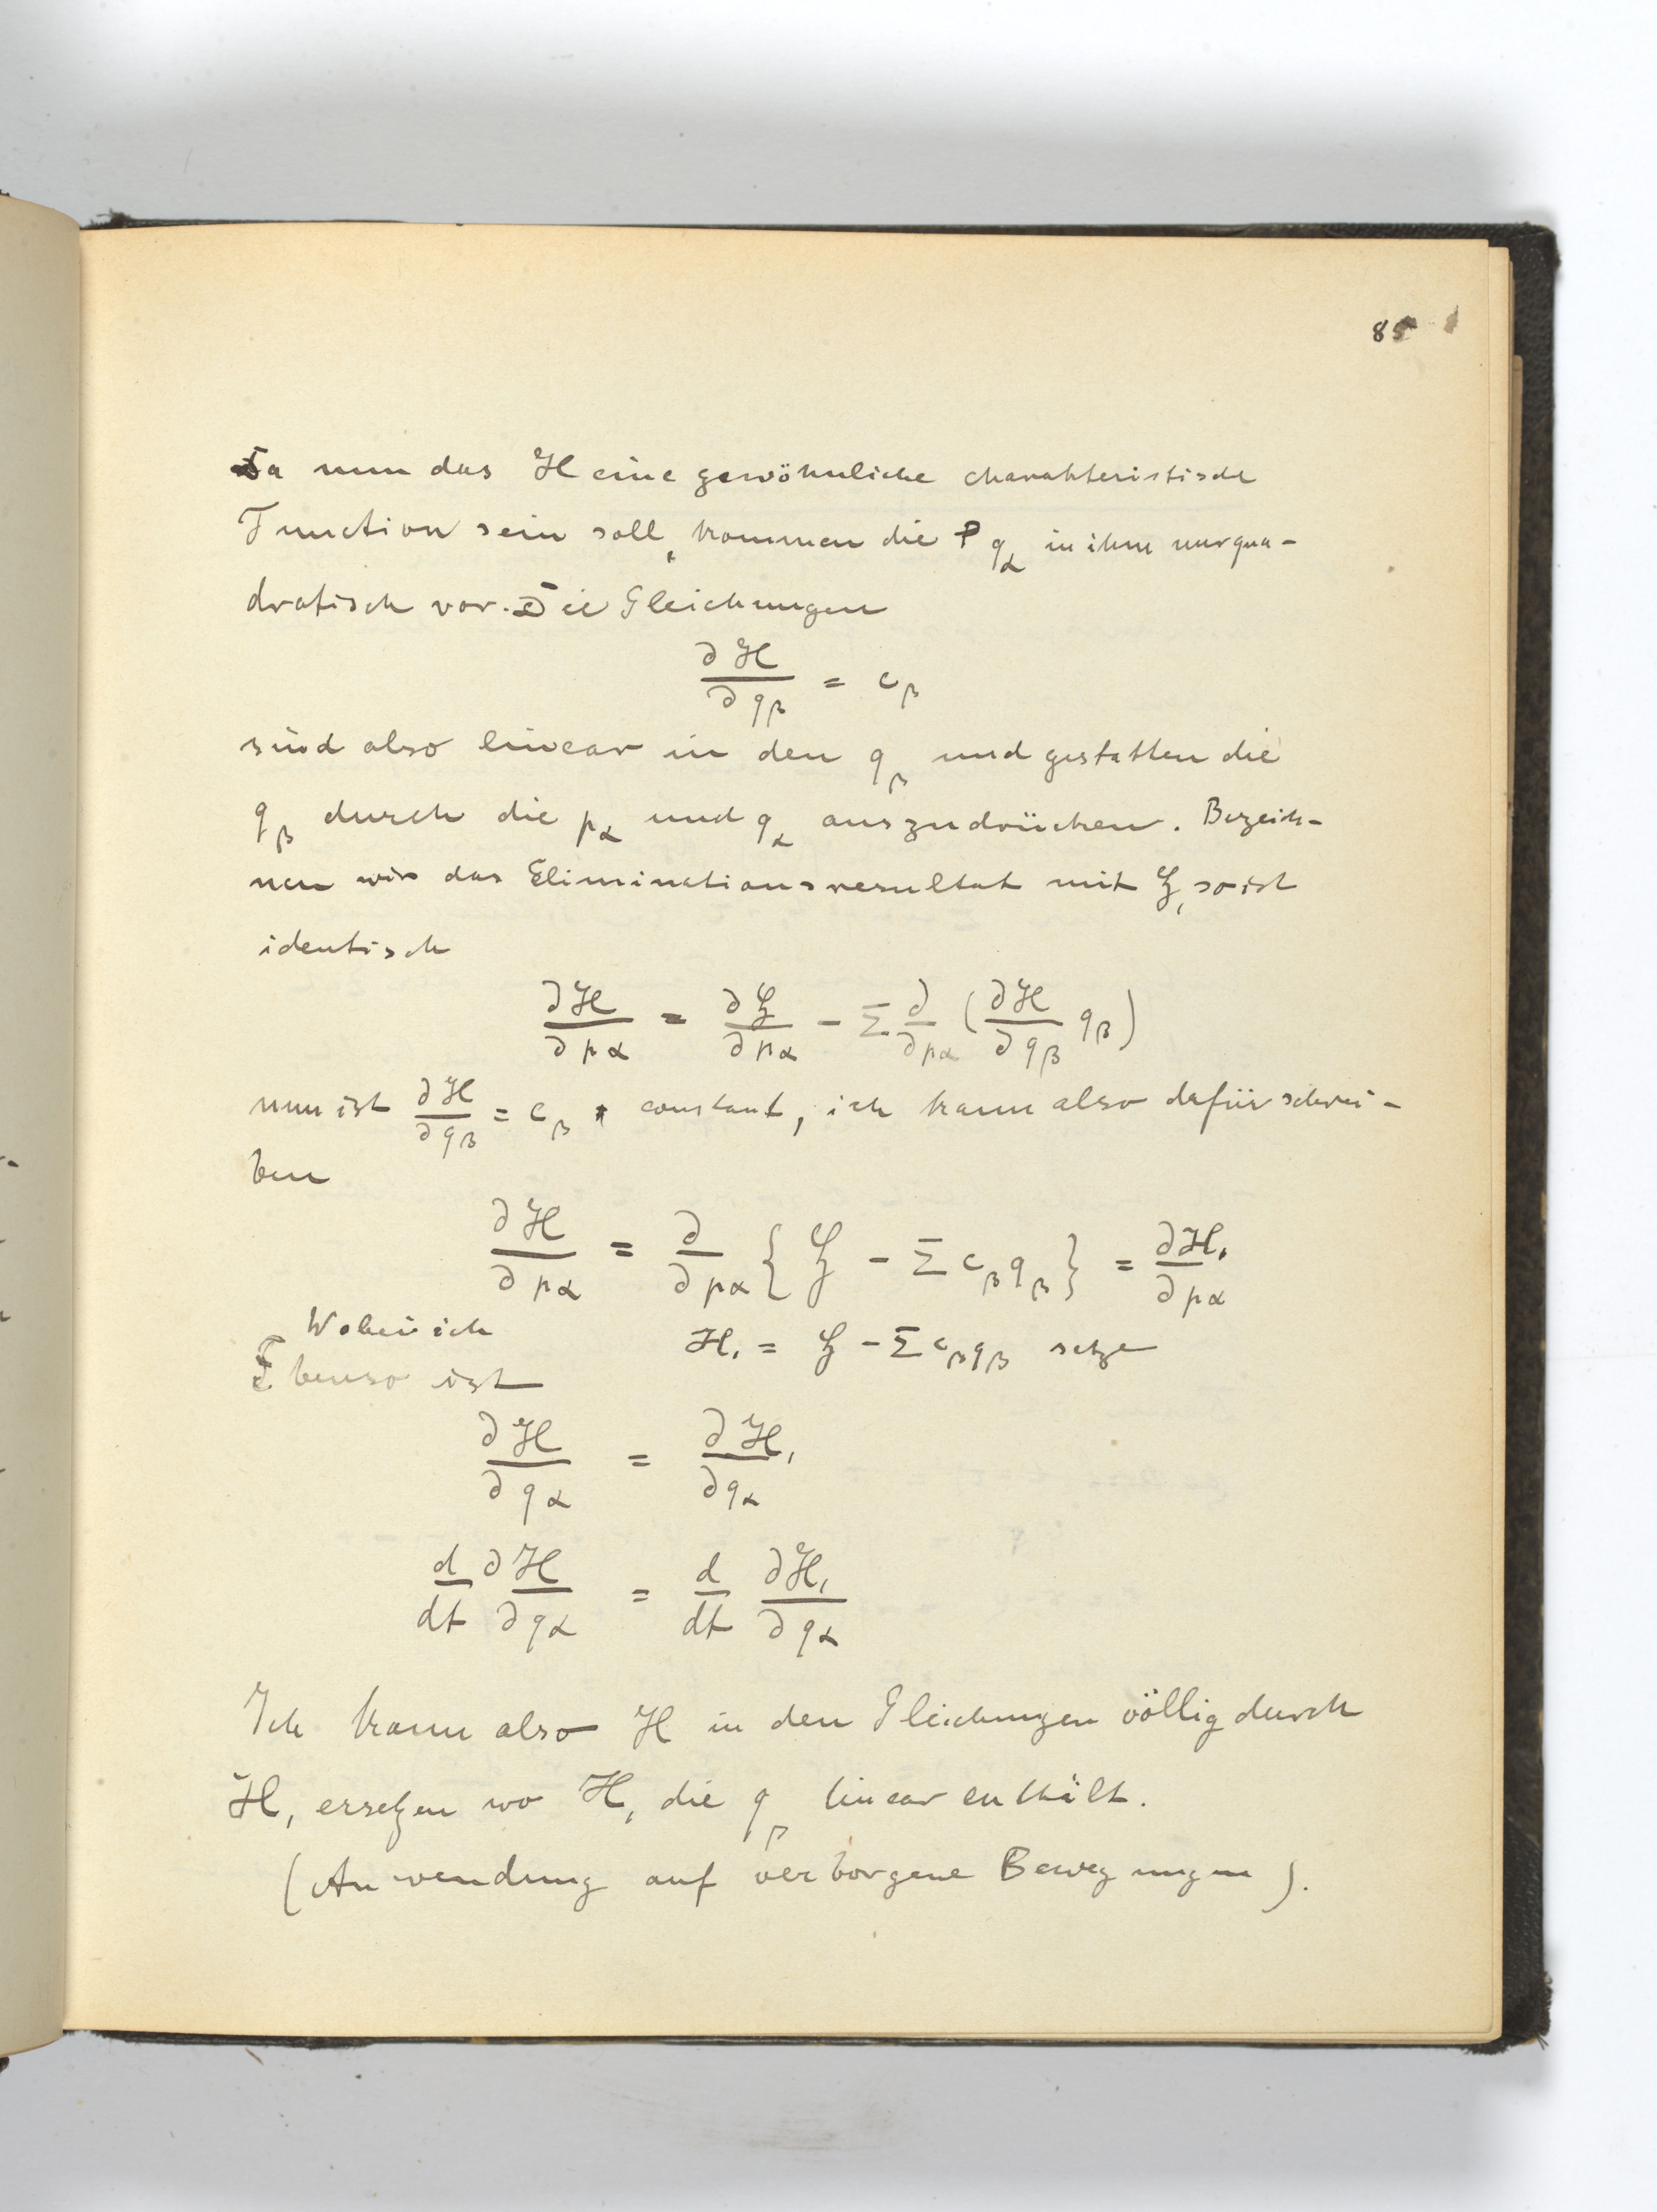 85
Da nun das H eine gewöhnliche charakteristische
Function sein soll, kommen die q_α in ihm nur qua-
dratisch vor. Die Gleichungen
∂H/∂q_β = c_β
sind also linear in den q_β und gestatten die
q_β durch die p_α und q_α auszudrücken. Bezeich-
nen wir das Eliminationsresultat mit ℌ, so ist
identisch
∂H/∂p_α = ∂ℌ/∂p_α - Σ ∂/∂p_α (∂H/∂q_β q_β)
nun ist ∂H/∂q_β = c_β constant, ich kann also dafür schrei-
ben
∂H/∂p_α = ∂/∂p_α { ℌ - Σ c_β q_β } = ∂H₁/∂p_α
Wobei ich H₁ = ℌ - Σ c_β q_β setze
Ebenso ist
∂H/∂q_α = ∂H₁/∂q_α
d/dt ∂H/∂q_α = d/dt ∂H₁/∂q_α
Ich kann also H in den Gleichungen völlig durch
H₁ ersetzen wo H₁ die q_β linear enthält.
(Anwendung auf verborgene Bewegungen).